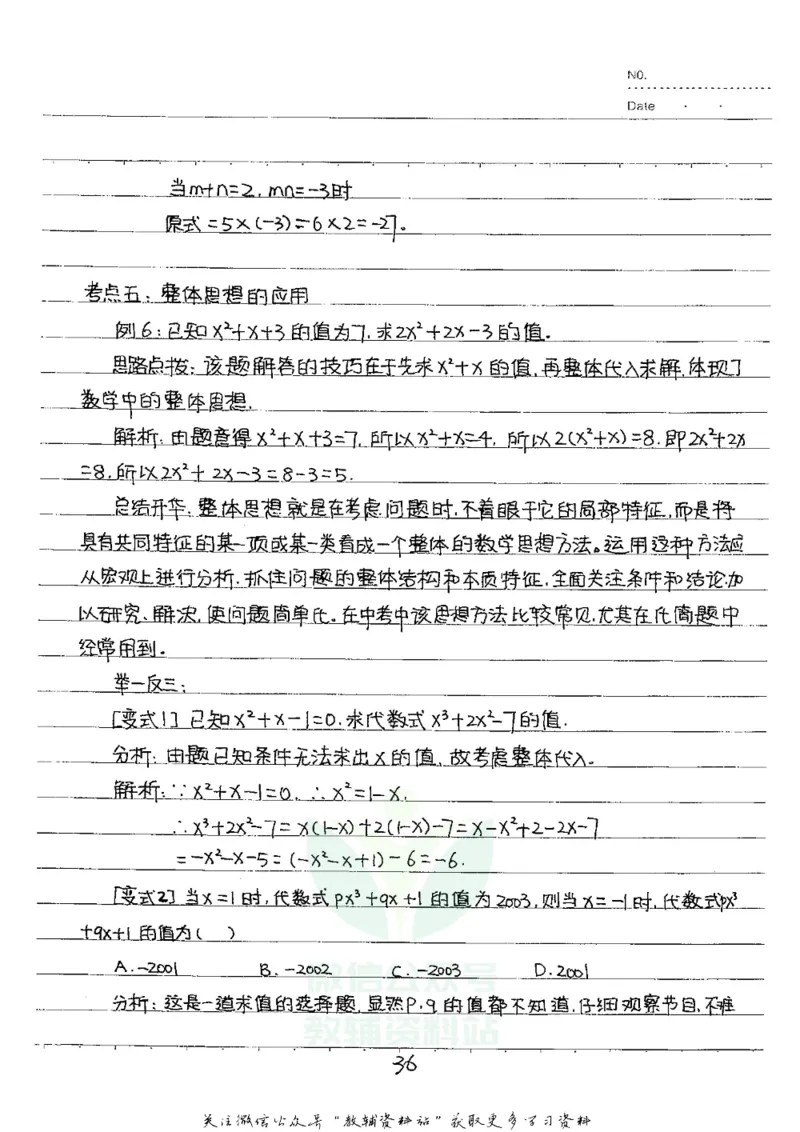 NO.
Date
当m+n=2，mn=-3时
原式=5×(-3)-6×2=-27。
考点五：整体思想的应用
例6：已知x²+x+3的值为7，求2x²+2x-3的值。
思路点拨：该题解答的技巧在于先求x²+x的值，再整体代入求解，体现了
数学中的整体思想．
解析：由题意得x²+x+3=7，所以x²+x=4，所以2(x²+x)=8，即2x²+2x
=8，所以2x²+2x-3=8-3=5．
总结升华：整体思想就是在考虑问题时，不着眼于它的局部特征，而是将
具有共同特征的某一项或某一类看成一个整体的数学思想方法。运用这种方法应
从宏观上进行分析，抓住问题的整体结构和本质特征，全面关注条件和结论，加
以研究、解决，使问题简单化。在中考中该思想方法比较常见，尤其在化简题中
经常用到．
举一反三：
[变式1] 已知x²+x-1=0，求代数式x³+2x²-7的值．
分析：由题已知条件无法求出x的值，故考虑整体代入。
解析：∵x²+x-1=0，∴x²=1-x，
∴x³+2x²-7=x(1-x)+2(1-x)-7=x-x²+2-2x-7
=-x²-x-5=(-x²-x+1)-6=-6．
[变式2] 当x=1时，代数式px³+qx+1的值为2003，则当x=-1时，代数式px³
+qx+1的值为(　)
A.-2001　B.-2002　C.-2003　D.2001
分析：这是一道求值的选择题，显然p，q的值都不知道，仔细观察节目，不难
微信公众号
教辅资料站
36
关注微信公众号“教辅资料站”获取更多学习资料